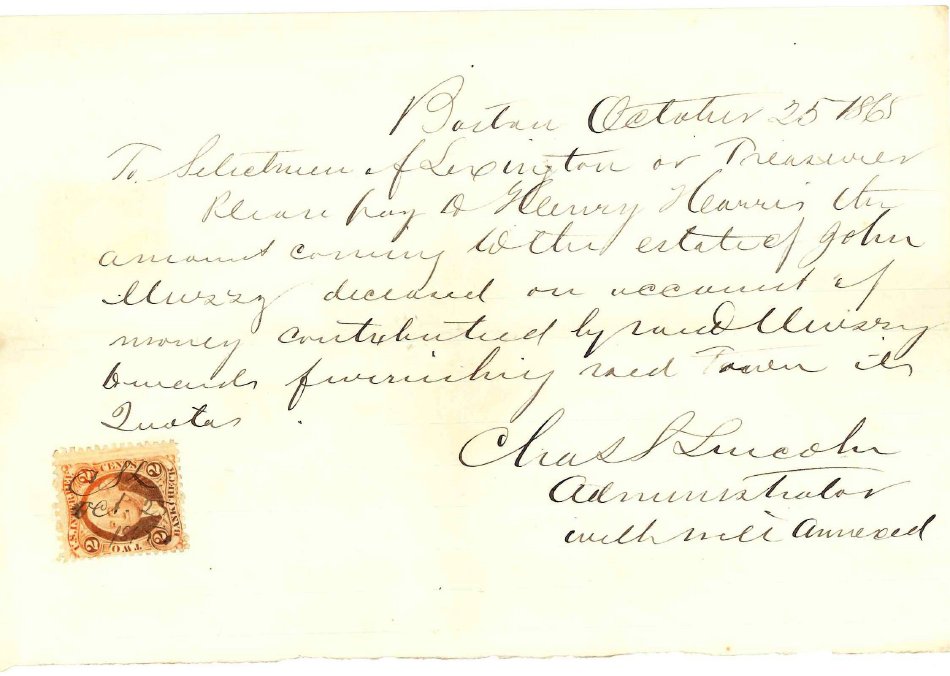 Boston October 25 1865
To Selectmen of Lexington or Treasurer
Please pay to Henry Harris the
amount coming to the estate of John
Muzzy deceased on account of
money contributed by said Muzzy
towards furnishing said Town its
Quotas.
Chas S Lincoln
Administrator
with will annexed
U.S. INTER. REV.
2 CENTS 2
BANK CHECK
2 TWO 2
CSL
Oct. 25